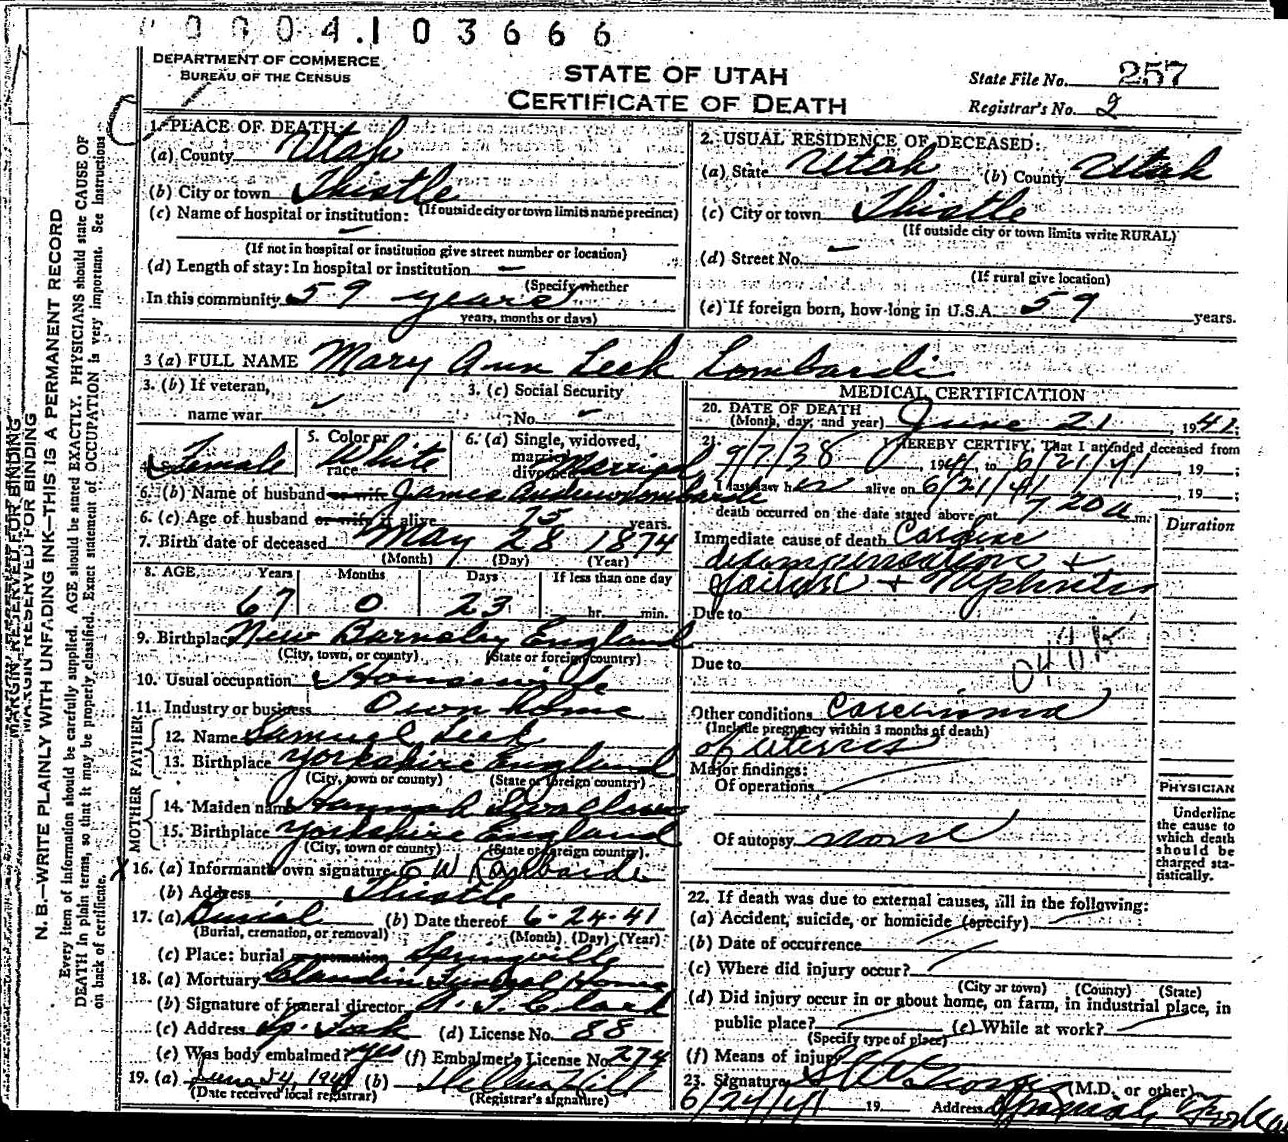 0004103666
DEPARTMENT OF COMMERCE
BUREAU OF THE CENSUS
STATE OF UTAH
CERTIFICATE OF DEATH
State File No. 257
Registrar's No. 2
MARGIN RESERVED FOR BINDING
N. B.—WRITE PLAINLY WITH UNFADING INK—THIS IS A PERMANENT RECORD
Every item of information should be carefully supplied. AGE should be stated EXACTLY. PHYSICIANS should state CAUSE OF
DEATH in plain terms, so that it may be properly classified. Exact statement of OCCUPATION is very important. See Instructions
on back of certificate.
1. PLACE OF DEATH:
(a) County Utah
(b) City or town Thistle
(If outside city or town limits name precinct)
(c) Name of hospital or institution: –
(If not in hospital or institution give street number or location)
(d) Length of stay: In hospital or institution –
(Specify whether
In this community 59 years
years, months or days)
2. USUAL RESIDENCE OF DECEASED:
(a) State Utah (b) County Utah
(c) City or town Thistle
(If outside city or town limits write RURAL)
(d) Street No. –
(If rural give location)
(e) If foreign born, how long in U.S.A. 59 years.
3 (a) FULL NAME Mary Ann Leek Lombardi
3. (b) If veteran,
name war
3. (c) Social Security
No. –
4. Female
5. Color or
race White
6. (a) Single, widowed,
married,
divorced Married
6. (b) Name of husband or wife James Andrew Lombardi
6. (c) Age of husband or wife if alive 75 years.
7. Birth date of deceased May 28 1874
(Month) (Day) (Year)
8. AGE Years Months Days If less than one day
67 0 23 hr. min.
9. Birthplace New Barnsley England
(City, town, or county) (State or foreign country)
10. Usual occupation Housewife
11. Industry or business Own home
FATHER
12. Name Samuel Leek
13. Birthplace Yorkshire England
(City, town or county) (State or foreign country)
MOTHER
14. Maiden name Hannah Swallow
15. Birthplace Yorkshire England
(City, town or county) (State or foreign country)
X 16. (a) Informant's own signature E W Lombardi
(b) Address Thistle
17. (a) Burial (b) Date thereof 6-24-41
(Burial, cremation, or removal) (Month) (Day) (Year)
(c) Place: burial or cremation Springville
18. (a) Mortuary Claudin Funeral Home
(b) Signature of funeral director
(c) Address Sp. Fork (d) License No. 88
(e) Was body embalmed? Yes (f) Embalmer's License No. 274
19. (a) June 24, 1941 (b)
(Date received local registrar) (Registrar's signature)
MEDICAL CERTIFICATION
20. DATE OF DEATH
(Month, day, and year) June 21, 1941
21. I HEREBY CERTIFY, That I attended deceased from
9/7/38 19 to 6/21/41, 19 ;
I last saw her alive on 6/21/41, 19 ;
death occurred on the date stated above at 7 20 a m.
Duration
Immediate cause of death Cardiac
decompensation +
failure + Nephritis
Due to
Due to
Other conditions Carcinoma
(Include pregnancy within 3 months of death)
of uterus
Major findings:
Of operations
Of autopsy none
PHYSICIAN
Underline
the cause to
which death
should be
charged sta-
tistically.
22. If death was due to external causes, fill in the following:
(a) Accident, suicide, or homicide (specify)
(b) Date of occurrence
(c) Where did injury occur?
(City or town) (County) (State)
(d) Did injury occur in or about home, on farm, in industrial place, in
public place? (e) While at work?
(Specify type of place)
(f) Means of injury
23. Signature (M.D. or other)
6/24/41 19 Address Spanish Fork